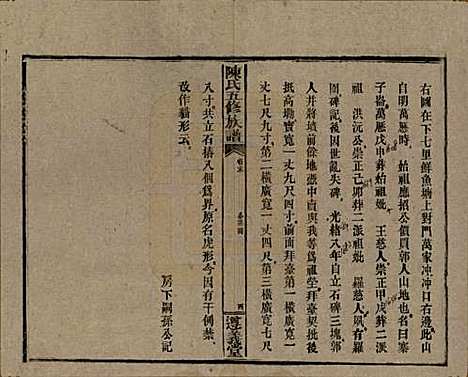 右圖在下七里鮮魚塘上對門萬家冲冲口右邊此山
自明萬懸時 始祖應招公價買郭人山地也有巽
子崙萬懸戊申葬始祖妣 王慈人崇正甲戌葬二派
祖 洪沅公崇正己卯葬二派祖妣 羅慈人夙有羅
圍碑記後因世亂失碑 光緒八年自立石碑三塊郭
人并將墳前餘地漲中賣與我等爲祖塋拜臺契批
抵高塝實寬一丈九尺四寸前面拜臺第一橫廣寬一
丈七尺九寸第二橫廣寬一丈四尺第三橫廣寬七尺
八寸共立石樁八個爲界原名虎形今因有干例禁
改作貓形云
房下嗣孫公記
陳氏五修族譜
卷末
四
遵義堂